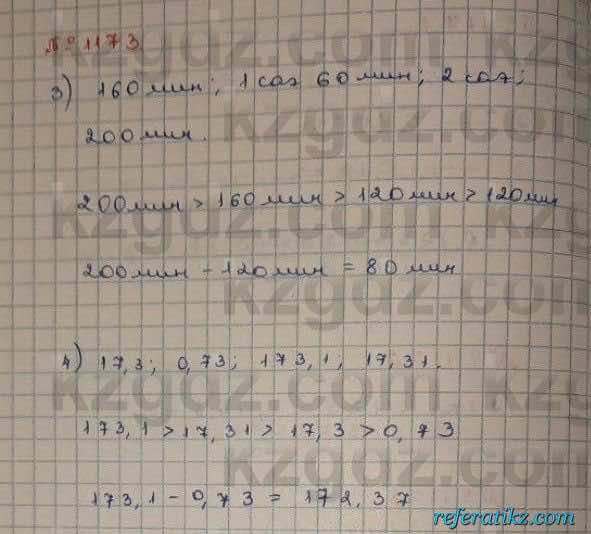 № 1173
3) 160 мин; 1 сағ 60 мин; 2 сағ;
200 мин.
200 мин > 160 мин > 120 мин > 120 мин
200 мин - 120 мин = 80 мин
4) 17,3; 0,73; 173,1; 17,31.
173,1 > 17,31 > 17,3 > 0,73
173,1 - 0,73 = 172,37
kzgdz.com
referatikz.com